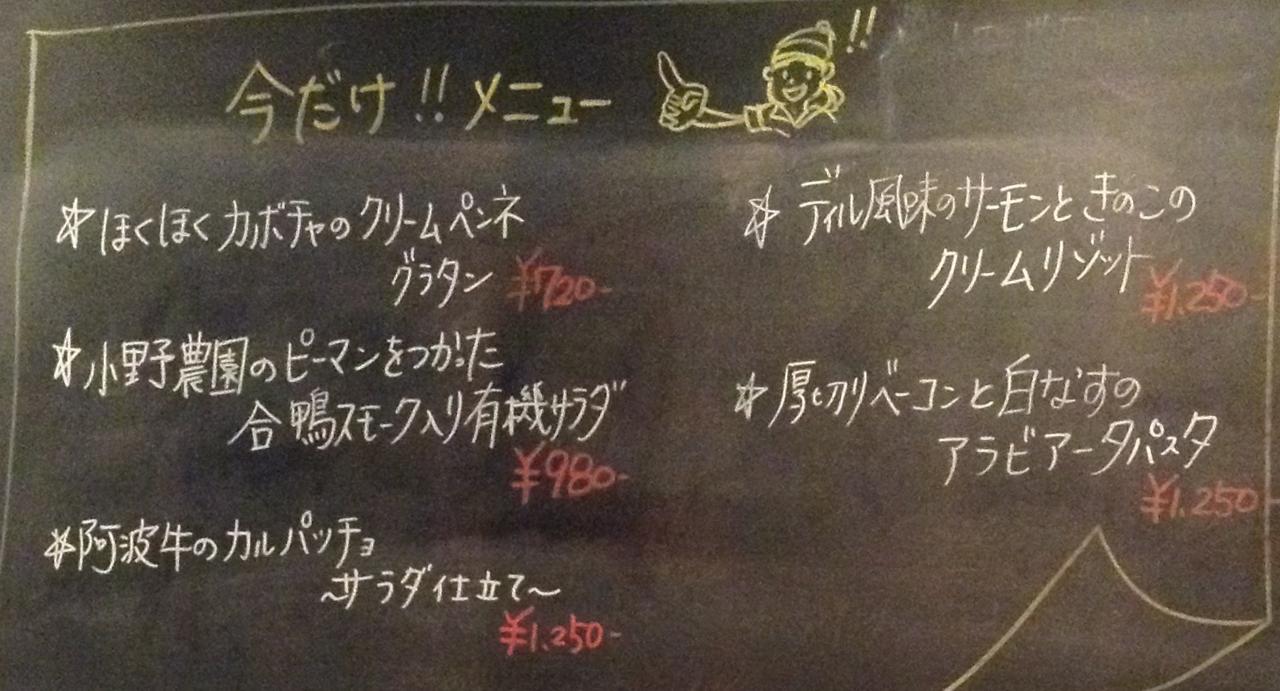 今だけ!!メニュー
!!
☆ほくほくカボチャのクリームペンネ
グラタン ¥720-
☆小野農園のピーマンをつかった
合鴨スモーク入り有機サラダ
¥980-
☆阿波牛のカルパッチョ
~サラダ仕立て~
¥1.250-
☆ディル風味のサーモンときのこの
クリームリゾット ¥1.250-
☆厚切りベーコンと白なすの
アラビアータパスタ
¥1.250-